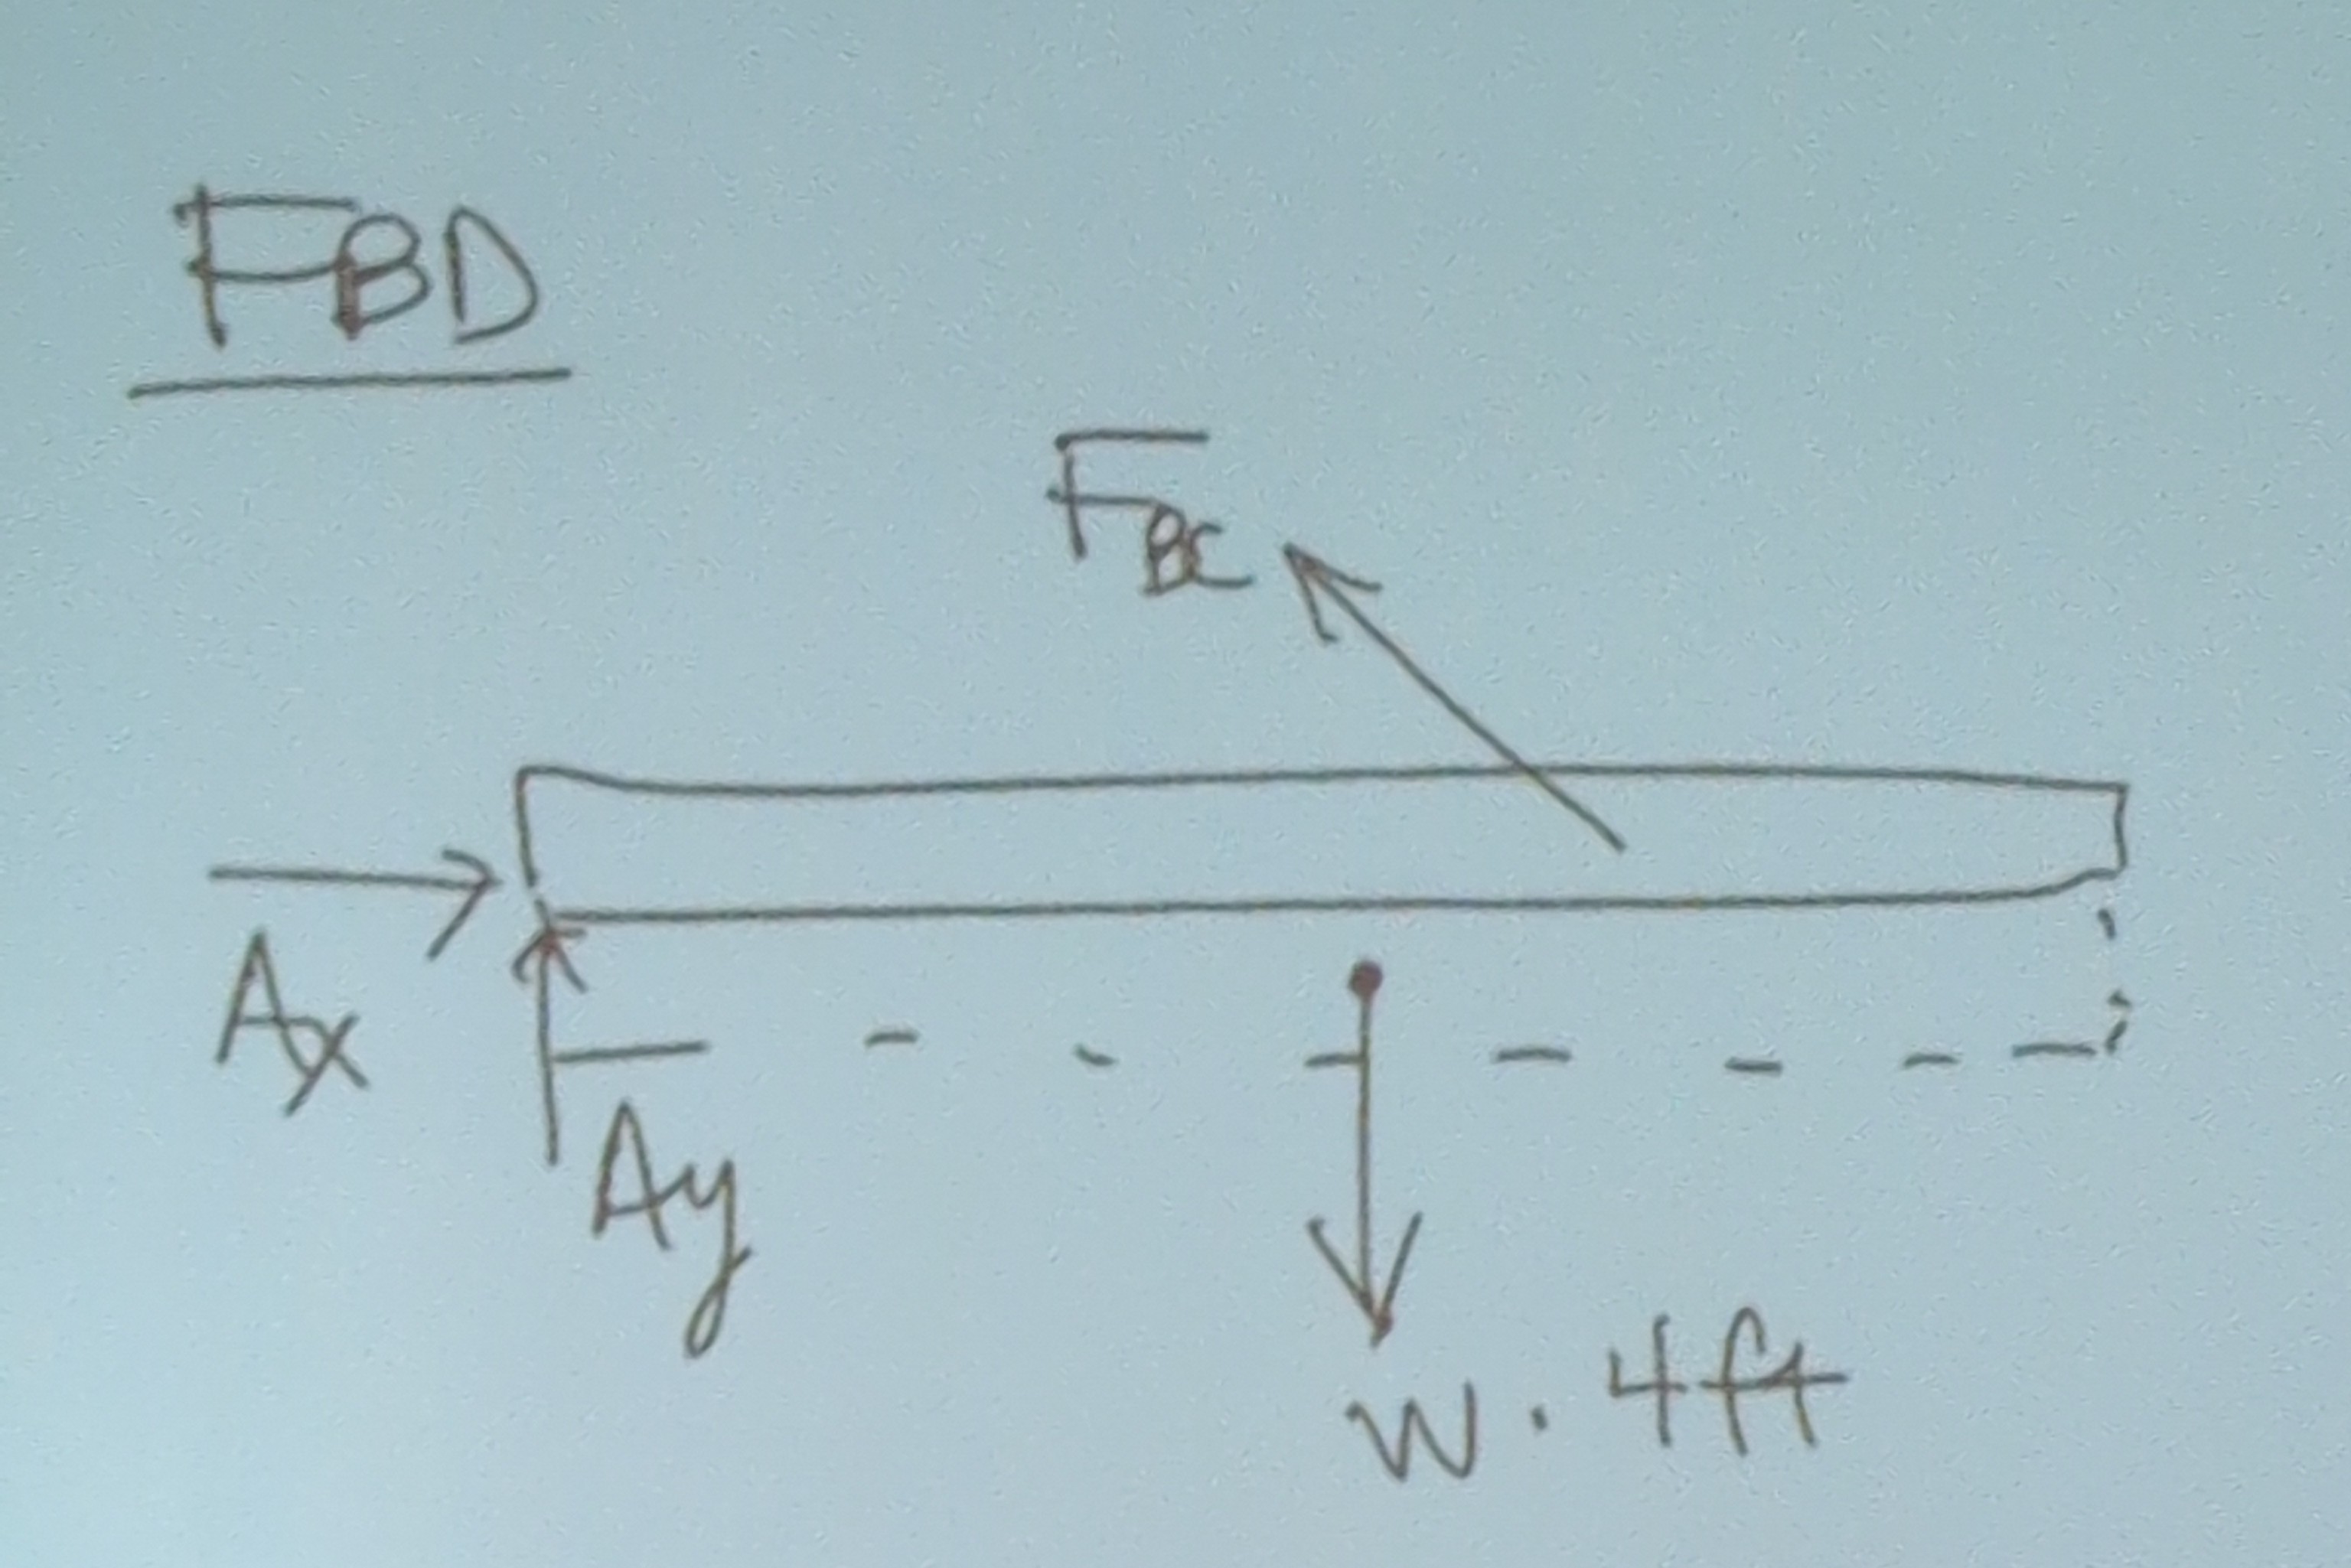 FBD
FBC
Ax
Ay
W. 4ft